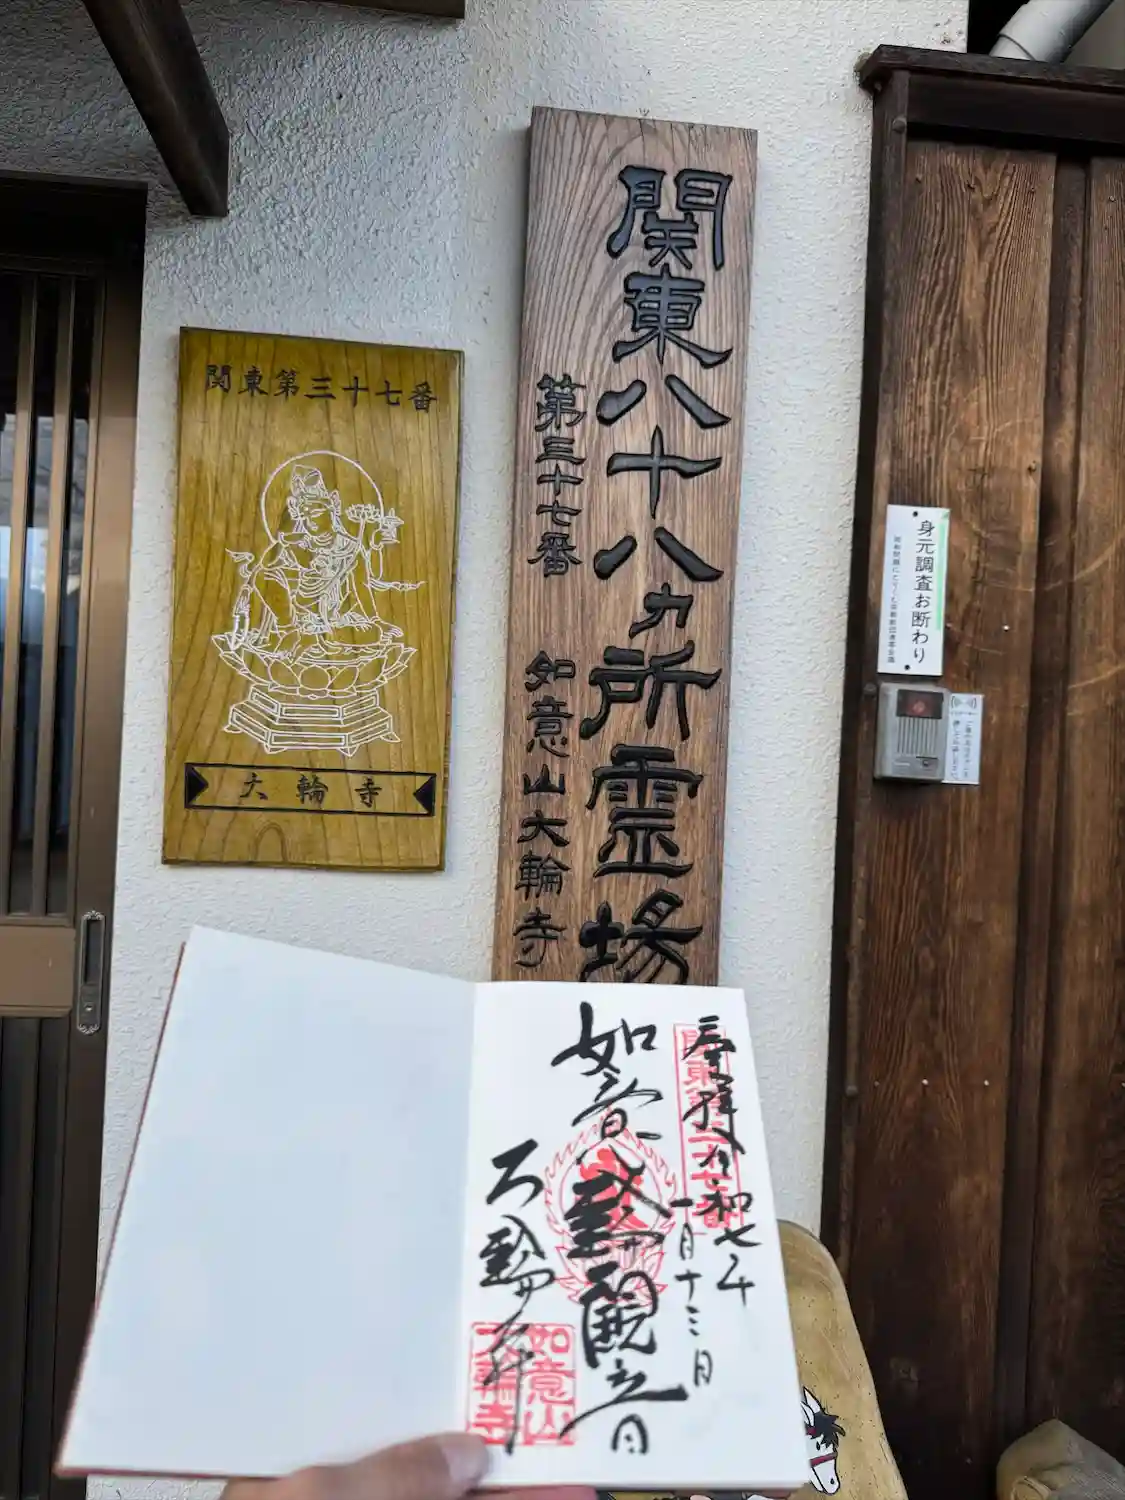 関東第三十七番
大輪寺
関東八十八ヵ所霊場
第三十七番 如意山大輪寺
身元調査お断わり
奉拝 令和七年
一月十三日
如意輪観音
大輪寺
関東第三十七番
如意山
大輪寺